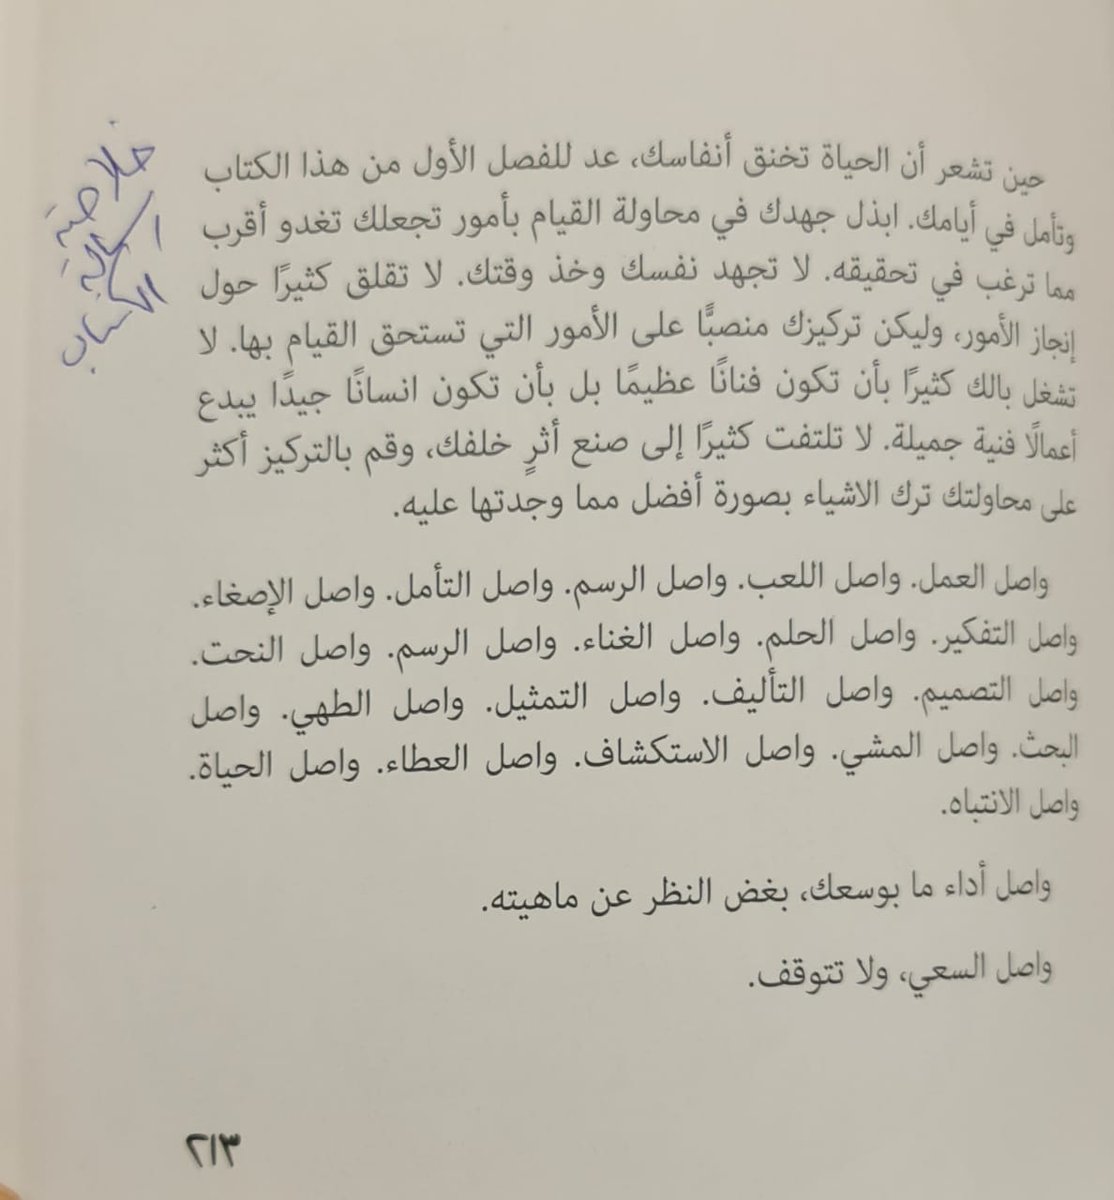 خلاصة
رسالة
الكتاب
حين تشعر أن الحياة تخنق أنفاسك، عد للفصل الأول من هذا الكتاب
وتأمل في أيامك. ابذل جهدك في محاولة القيام بأمور تجعلك تغدو أقرب
مما ترغب في تحقيقه. لا تجهد نفسك وخذ وقتك. لا تقلق كثيرًا حول
إنجاز الأمور، وليكن تركيزك منصبًّا على الأمور التي تستحق القيام بها. لا
تشغل بالك كثيرًا بأن تكون فنانًا عظيمًا بل بأن تكون انسانًا جيدًا يبدع
أعمالًا فنية جميلة. لا تلتفت كثيرًا إلى صنع أثرٍ خلفك، وقم بالتركيز أكثر
على محاولتك ترك الاشياء بصورة أفضل مما وجدتها عليه.
واصل العمل. واصل اللعب. واصل الرسم. واصل التأمل. واصل الإصغاء.
واصل التفكير. واصل الحلم. واصل الغناء. واصل الرسم. واصل النحت.
واصل التصميم. واصل التأليف. واصل التمثيل. واصل الطهي. واصل
البحث. واصل المشي. واصل الاستكشاف. واصل العطاء. واصل الحياة.
واصل الانتباه.
واصل أداء ما بوسعك، بغض النظر عن ماهيته.
واصل السعي، ولا تتوقف.
٢١٣